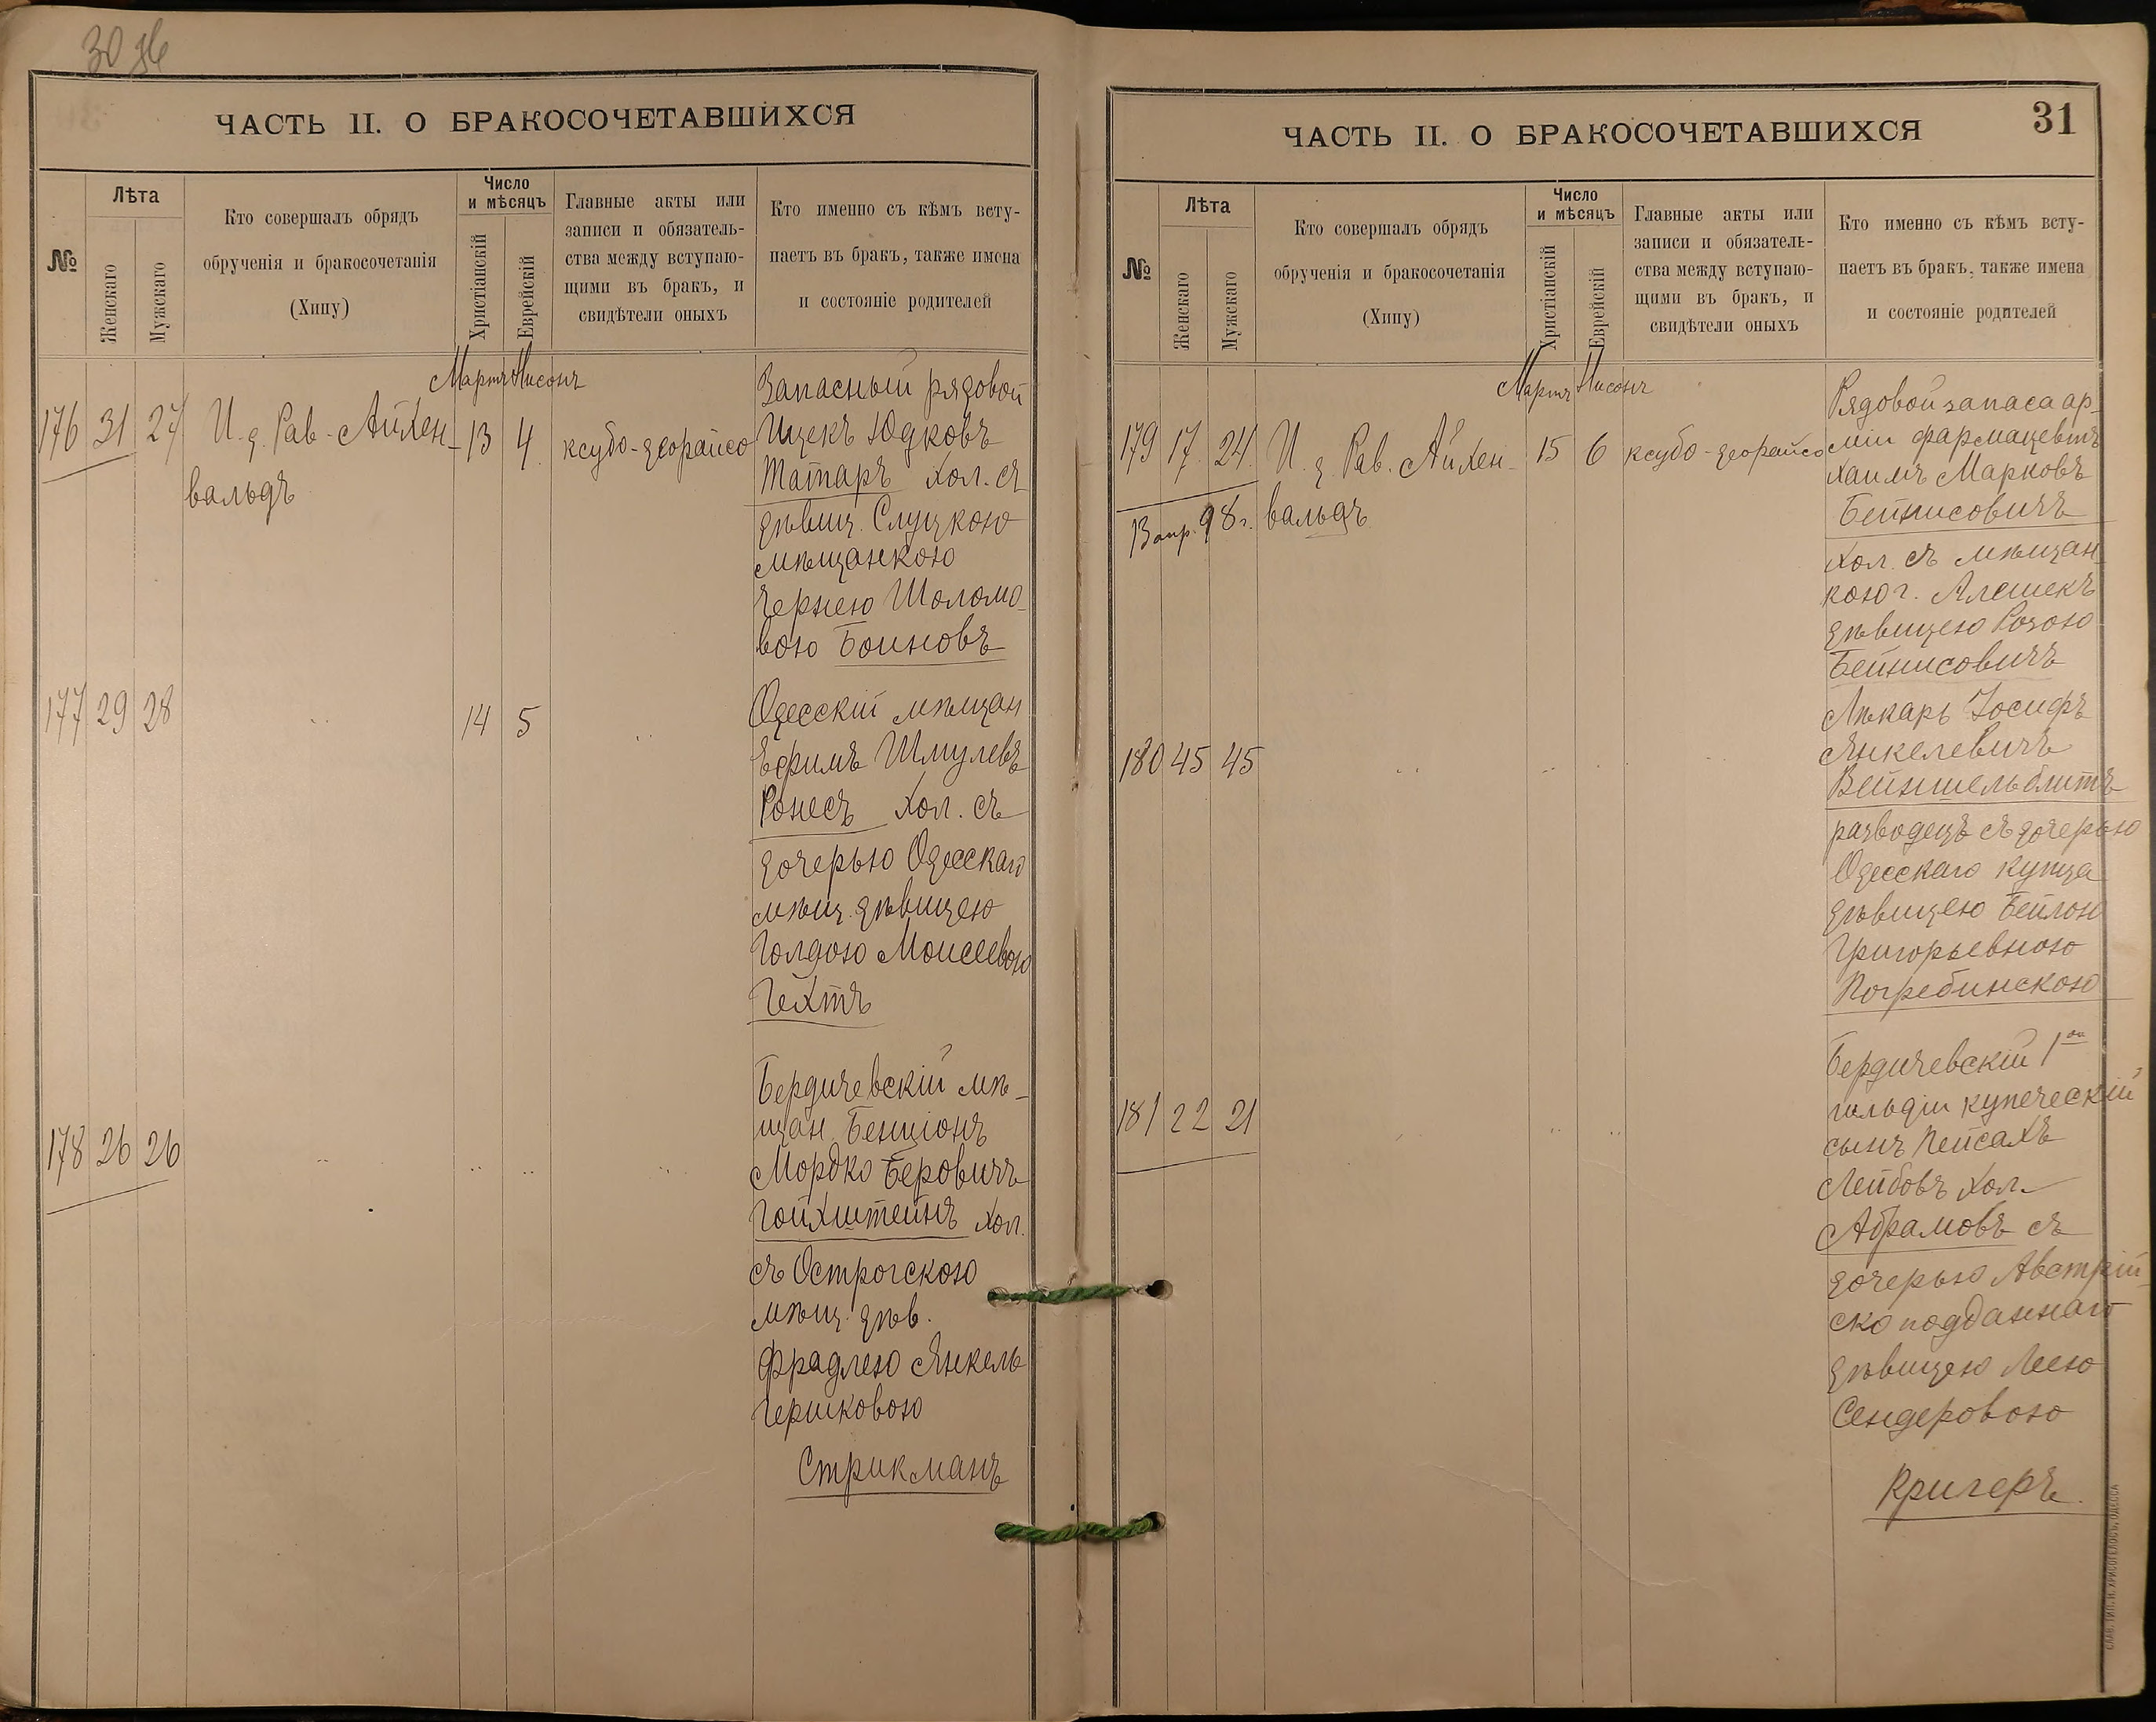 ЧАСТЬ II. О БРАКОСОЧЕТАВШИХСЯ
№
Лѣта
Женскаго
Мужскаго
Кто совершалъ обрядъ
обрученія и бракосочетанія
(Хипу)
Число
и мѣсяцъ
Христіанскій
Еврейскій
Главные акты или
записи и обязатель-
ства между вступаю-
щими въ бракъ, и
свидѣтели оныхъ
Кто именно съ кѣмъ всту-
паетъ въ бракъ, также имена
и состояніе родителей
Мартъ Нисонъ
176 31 27 И. д. Рав. Айхен-
вальдъ
13 4 ксубо-деорайсо
Запасный рядовой
Ицекъ Юдковъ
Татаръ хол. съ
дѣвиц. Слуцкою
мѣщанкою
Чернею Шоломо-
вою Боиновъ
177 29 28 .. 14 5 ..
Одесскій мѣщан
Ефимъ Шмулевъ
Ронесъ хол. съ
дочерью Одесскаго
мѣщ. дѣвицею
Голдою Моисеевою
Гехтъ
178 26 26 .. .. .. ..
Бердичевскій мѣ-
щан. Бенціонъ
Мордко Беровичъ
Гойхштейнъ хол.
съ Острогскою
мѣщ. дѣв.
Фрадлею Янкель
Гершковою
Стрикманъ
31
ЧАСТЬ II. О БРАКОСОЧЕТАВШИХСЯ
№
Лѣта
Женскаго
Мужскаго
Кто совершалъ обрядъ
обрученія и бракосочетанія
(Хипу)
Число
и мѣсяцъ
Христіанскій
Еврейскій
Главные акты или
записи и обязатель-
ства между вступаю-
щими въ бракъ, и
свидѣтели оныхъ
Кто именно съ кѣмъ всту-
паетъ въ бракъ, также имена
и состояніе родителей
Мартъ Нисонъ
179 17 24 И. д. Рав. Айхен-
вальдъ
13 апр. 98 г.
15 6 ксубо-деорайсо
Рядовой запаса ар-
міи фармацевтъ
Хаимъ Марковъ
Бейнисовичъ
хол. съ мѣщан-
кою г. Алешекъ
дѣвицею Розою
Бейнисовичъ
180 45 45 .. .. ..
Лѣкарь Іосифъ
Янкелевичъ
Вейншельблитъ
разводецъ съ дочерью
Одесскаго купца
дѣвицею Бейлою
Григорьевною
Погребинскою
181 22 21 .. ..
Бердичевскій 1ой
гильдіи купеческій
сынъ Пейсахъ
Лейбовъ хол.
Абрамовъ съ
дочерью Австрій-
ско подданнаго
дѣвицею Леею
Сендеровою
Кригеръ.
СЛАВ. ТИП. Н. ХРИСОГЕЛОСЪ, ОДЕССА